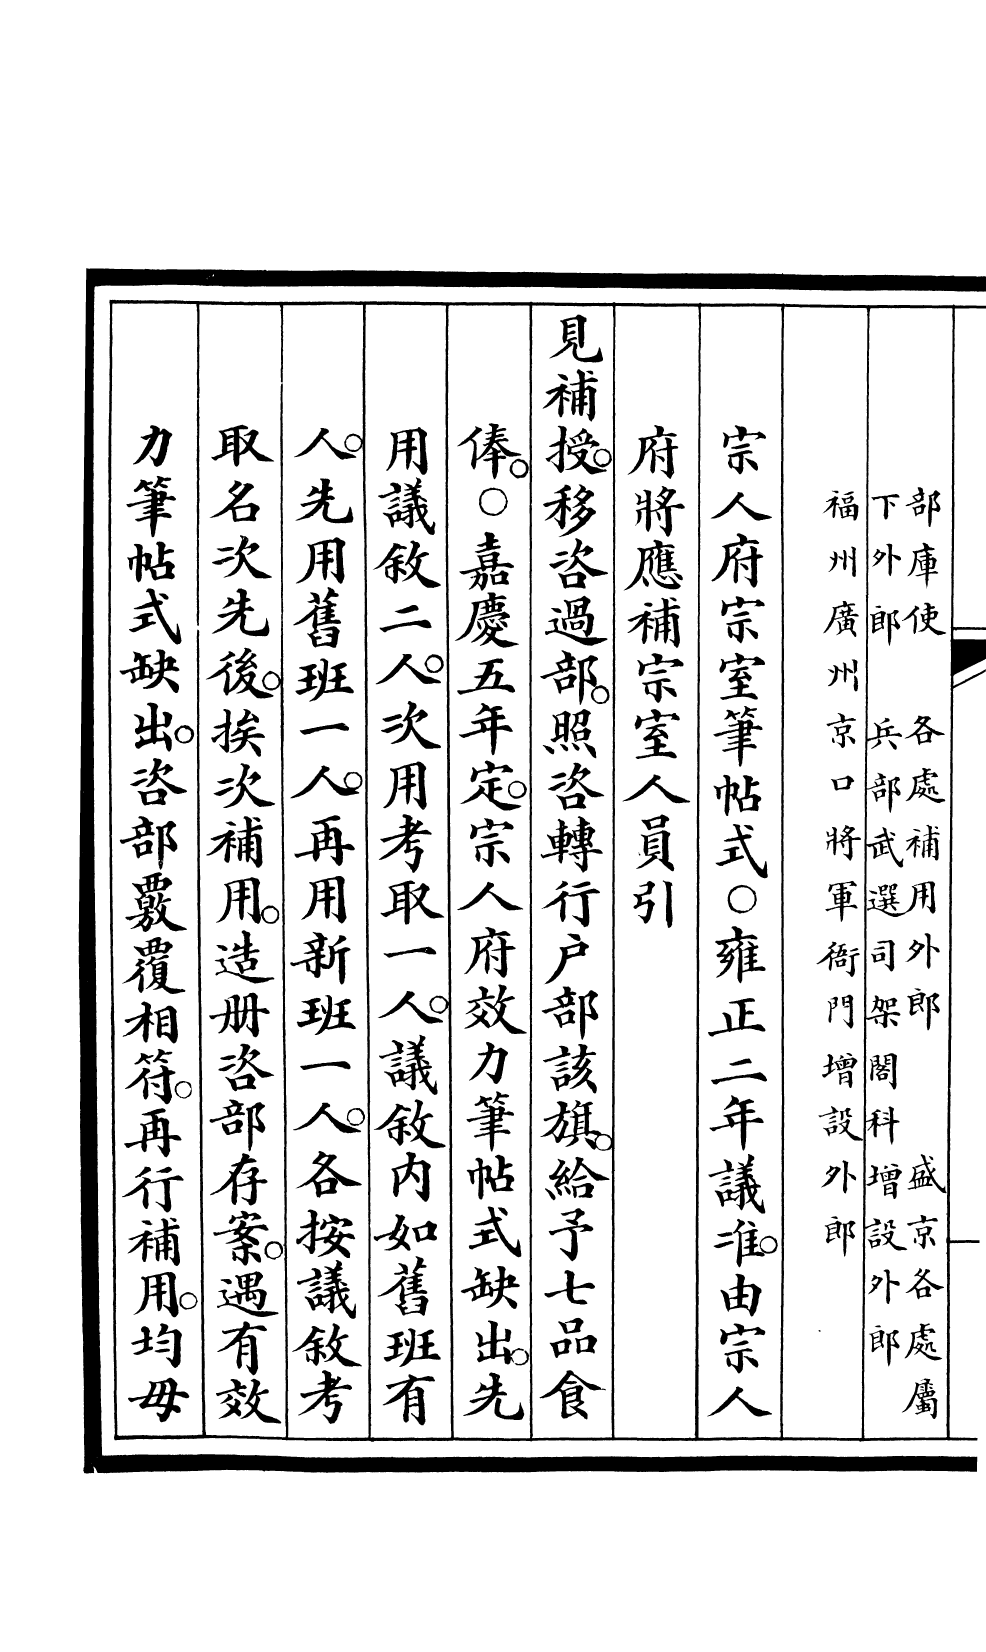 部庫使　各處補用外郎　盛京各處屬
下外郎　兵部武選司架閣科增設外郎
福州廣州京口將軍衙門增設外郎
宗人府宗室筆帖式○雍正二年議准。由宗人
府將應補宗室人員引
見補授。移咨過部。照咨轉行户部該旗。給予七品食
俸。○嘉慶五年定。宗人府效力筆帖式缺出。先
用議敘二人。次用考取一人。議敘内如舊班有
人。先用舊班一人。再用新班一人。各按議敘考
取名次先後。挨次補用。造册咨部存案。遇有效
力筆帖式缺出。咨部覈覆相符。再行補用。均毋